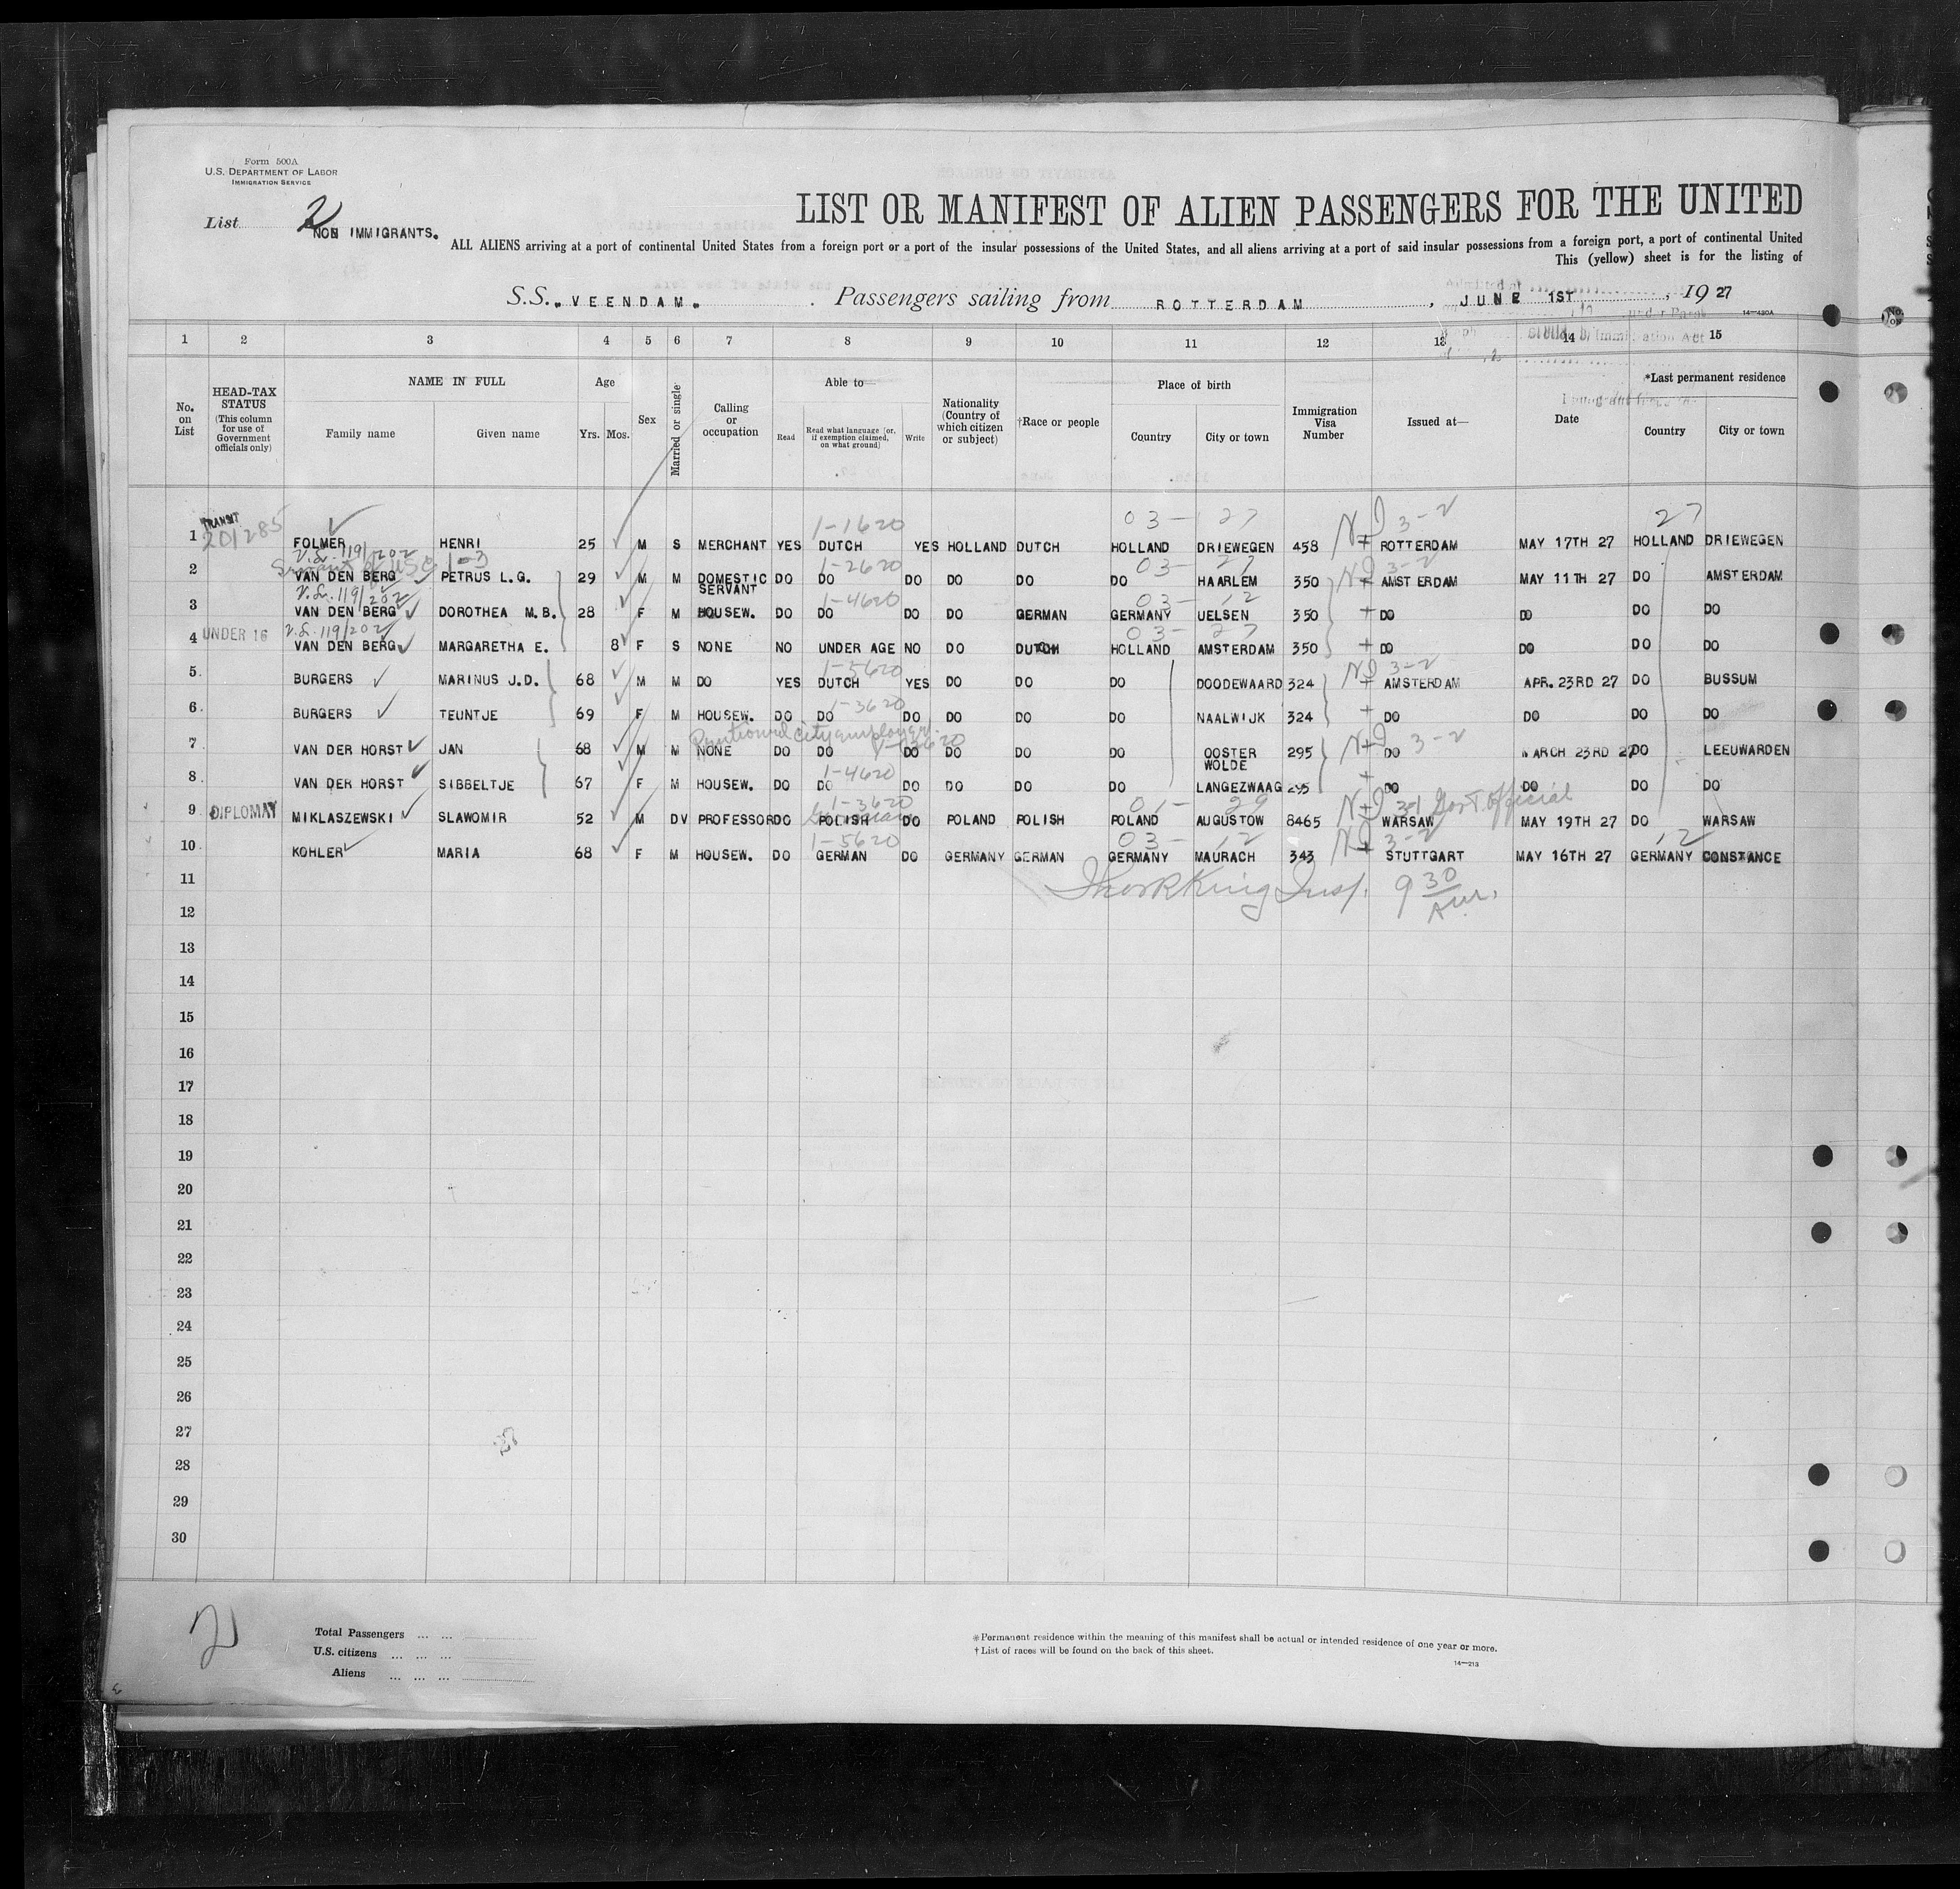 Form 500A
U.S. DEPARTMENT OF LABOR
IMMIGRATION SERVICE
List 2
NON IMMIGRANTS.
LIST OR MANIFEST OF ALIEN PASSENGERS FOR THE UNITED
ALL ALIENS arriving at a port of continental United States from a foreign port or a port of the insular possessions of the United States, and all aliens arriving at a port of said insular possessions from a foreign port, a port of continental United
This (yellow) sheet is for the listing of
S.S. VEENDAM. Passengers sailing from ROTTERDAM, JUNE 1ST, 1927
14—430A
1 2 3 4 5 6 7 8 9 10 11 12 13 14 15
No. on List
HEAD-TAX STATUS (This column for use of Government officials only)
NAME IN FULL
Family name
Given name
Age
Yrs. Mos.
Sex
Married or single
Calling or occupation
Able to
Read
Read what language [or, if exemption claimed, on what ground]
Write
Nationality (Country of which citizen or subject)
†Race or people
Place of birth
Country
City or town
Immigration Visa Number
Issued at—
Date
*Last permanent residence
Country
City or town
TRANSIT 1-1620 03- 27 3-2 27
1 201285 FOLMER HENRI 25 M S MERCHANT YES DUTCH YES HOLLAND DUTCH HOLLAND DRIEWEGEN 458 ROTTERDAM MAY 17TH 27 HOLLAND DRIEWEGEN
119/202 1-3 1-2620 03- 27 3-2
2 VAN DEN BERG PETRUS L.G. 29 M M DOMESTIC SERVANT DO DO DO DO DO DO HAARLEM 350 AMSTERDAM MAY 11TH 27 DO AMSTERDAM
119/202 1-4620 03- 12
3 VAN DEN BERG DOROTHEA M.B. 28 F M HOUSEW. DO DO DO DO GERMAN GERMANY UELSEN 350 DO DO DO DO
119/202 03- 27
4 UNDER 16 VAN DEN BERG MARGARETHA E. 8 F S NONE NO UNDER AGE NO DO DUTCH HOLLAND AMSTERDAM 350 DO DO DO DO
1-5620 3-2
5 BURGERS MARINUS J.D. 68 M M DO YES DUTCH YES DO DO DO DOODEWAARD 324 AMSTERDAM APR. 23RD 27 DO BUSSUM
1-3620
6 BURGERS TEUNTJE 69 F M HOUSEW. DO DO DO DO DO DO NAALWIJK 324 DO DO DO DO
city employee 3-2
7 VAN DER HORST JAN 68 M M NONE DO DO DO DO DO DO OOSTER WOLDE 295 DO MARCH 23RD 27 DO LEEUWARDEN
1-4620
8 VAN DER HORST SIBBELTJE 67 F M HOUSEW. DO DO DO DO DO DO LANGEZWAAG 295 DO DO DO DO
1-3620 01- 29 3-1 Gov't. official
9 DIPLOMAT MIKLASZEWSKI SLAWOMIR 52 M DV PROFESSOR DO POLISH DO POLAND POLISH POLAND AUGUSTOW 8465 WARSAW MAY 19TH 27 DO WARSAW
1-5620 03- 12 3-2 12
10 KOHLER MARIA 68 F M HOUSEW. DO GERMAN DO GERMANY GERMAN GERMANY MAURACH 343 STUTTGART MAY 16TH 27 GERMANY CONSTANCE
11 King Insp. 9 30 A.M.
12
13
14
15
16
17
18
19
20
21
22
23
24
25
26
27
28
29
30
2
Total Passengers
U.S. citizens
Aliens
*Permanent residence within the meaning of this manifest shall be actual or intended residence of one year or more.
†List of races will be found on the back of this sheet.
14—213